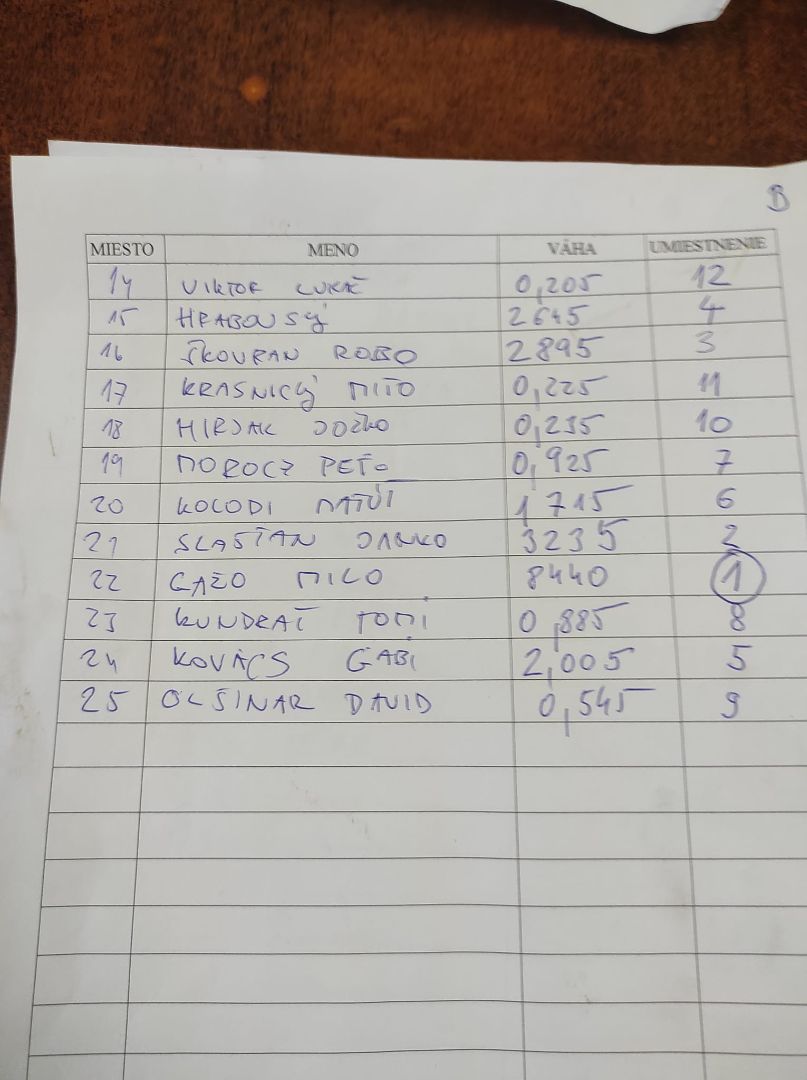 B
MIESTO MENO VÁHA UMIESTNENIE
14 VIKTOR LUKÁČ 0,205 12
15 HRABOVSKÝ 2645 4
16 ŠKOVRAN ROBO 2895 3
17 KRASNICKÝ MIŤO 0,225 11
18 HIRJAK JOŽKO 0,235 10
19 MOROCZ PEŤO 0,925 7
20 KOLODI MATÚŠ 1,715 6
21 SLAŠŤAN JANKO 3235 2
22 GAŽO MILO 8440 1
23 KUNDRÁT TOMI 0,885 8
24 KOVÁCS GABI 2,005 5
25 OLŠINAR DAVID 0,545 9